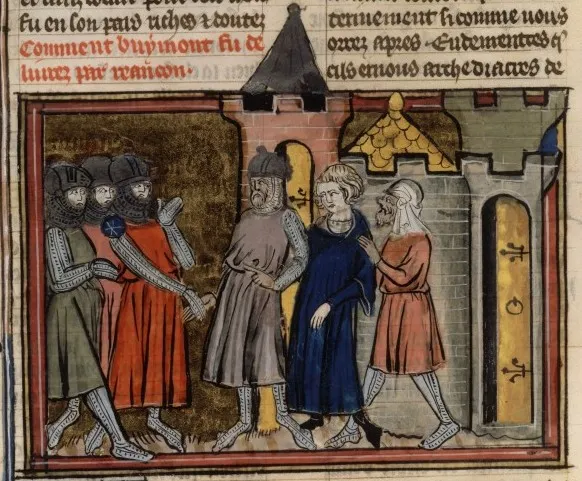 fu en son pais riches ⁊ doutez
Comment buymont fu de
liurez par raancon.
si comme uous
orrez apres. Endementres q̃
cils ernous archediacres de